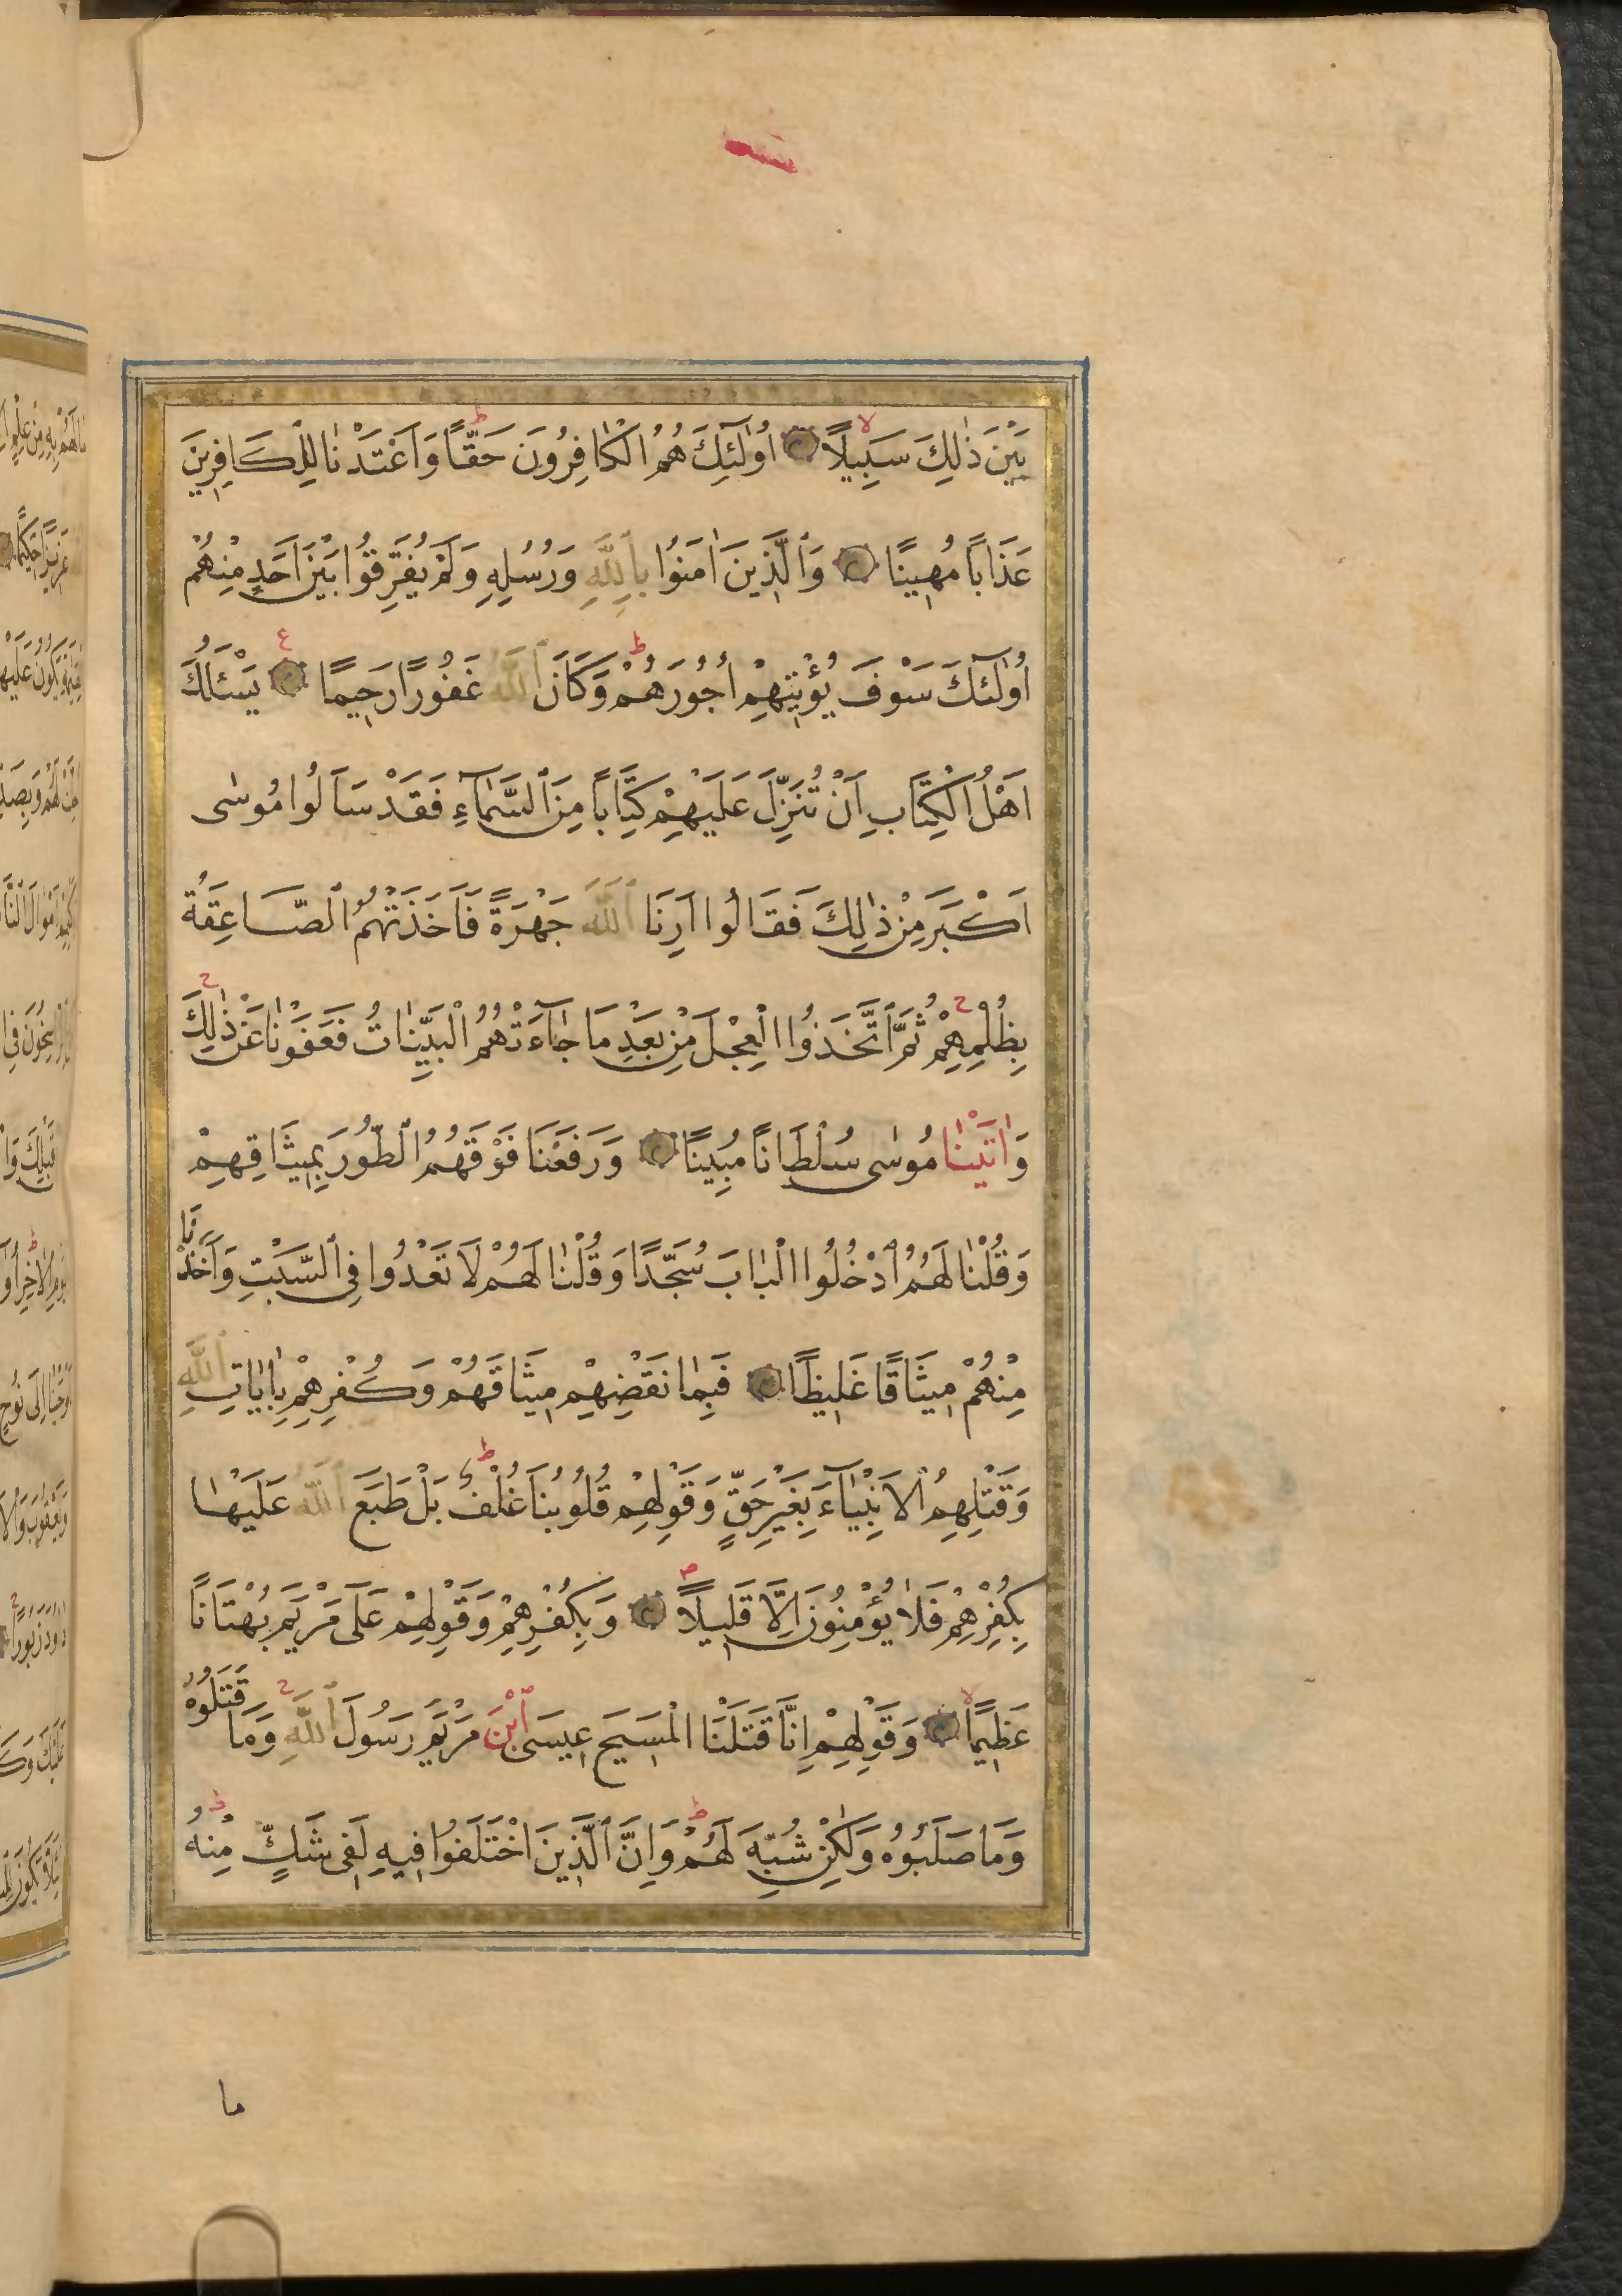 بَيْنَ ذٰلِكَ سَبِيلًا اُولٰٓئِكَ هُمُ الْكَافِرُونَ حَقًّا وَاَعْتَدْنَا لِلْكَافِرِينَ
عَذَابًا مُهِينًا وَالَّذِينَ اٰمَنُوا بِاللّٰهِ وَرُسُلِهِ وَلَمْ يُفَرِّقُوا بَيْنَ اَحَدٍ مِنْهُمْ
اُولٰٓئِكَ سَوْفَ يُؤْتِيهِمْ اُجُورَهُمْ وَكَانَ اللّٰهُ غَفُورًا رَحِيمًا يَسْئَلُكَ
اَهْلُ الْكِتَابِ اَنْ تُنَزِّلَ عَلَيْهِمْ كِتَابًا مِنَ السَّمَآءِ فَقَدْ سَاَلُوا مُوسٰى
اَكْبَرَ مِنْ ذٰلِكَ فَقَالُوا اَرِنَا اللّٰهَ جَهْرَةً فَاَخَذَتْهُمُ الصَّاعِقَةُ
بِظُلْمِهِمْ ثُمَّ اتَّخَذُوا الْعِجْلَ مِنْ بَعْدِ مَا جَآءَتْهُمُ الْبَيِّنَاتُ فَعَفَوْنَا عَنْ ذٰلِكَ
وَاٰتَيْنَا مُوسٰى سُلْطَانًا مُبِينًا وَرَفَعْنَا فَوْقَهُمُ الطُّورَ بِمِيثَاقِهِمْ
وَقُلْنَا لَهُمُ ادْخُلُوا الْبَابَ سُجَّدًا وَقُلْنَا لَهُمْ لَا تَعْدُوا فِي السَّبْتِ وَاَخَذْنَا
مِنْهُمْ مِيثَاقًا غَلِيظًا فَبِمَا نَقْضِهِمْ مِيثَاقَهُمْ وَكُفْرِهِمْ بِاٰيَاتِ اللّٰهِ
وَقَتْلِهِمُ الْاَنْبِيَآءَ بِغَيْرِ حَقٍّ وَقَوْلِهِمْ قُلُوبُنَا غُلْفٌ بَلْ طَبَعَ اللّٰهُ عَلَيْهَا
بِكُفْرِهِمْ فَلَا يُؤْمِنُونَ اِلَّا قَلِيلًا وَبِكُفْرِهِمْ وَقَوْلِهِمْ عَلٰى مَرْيَمَ بُهْتَانًا
عَظِيمًا وَقَوْلِهِمْ اِنَّا قَتَلْنَا الْمَسِيحَ عِيسَى ابْنَ مَرْيَمَ رَسُولَ اللّٰهِ وَمَا قَتَلُوهُ
وَمَا صَلَبُوهُ وَلٰكِنْ شُبِّهَ لَهُمْ وَاِنَّ الَّذِينَ اخْتَلَفُوا فِيهِ لَفِي شَكٍّ مِنْهُ
ما